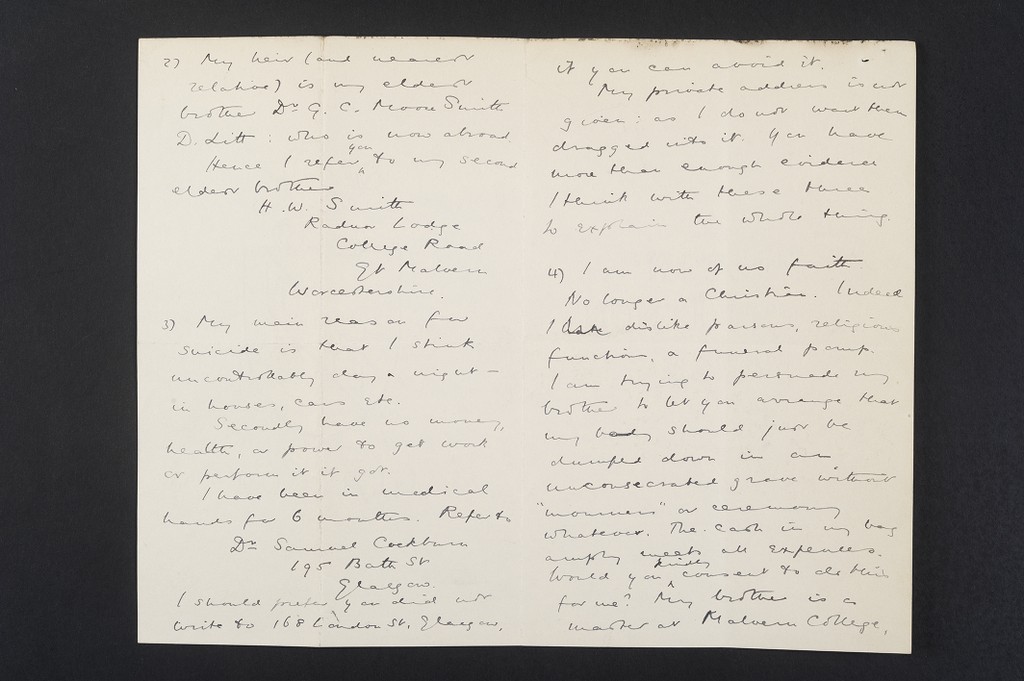 2) My heir (and nearest
relative) is my elder
brother Dr G. C. Moore Smith
D. Litt: who is now abroad
Hence I refer you to my second
elder brother
H. W. Smith
Radnor Lodge
College Road
Gt Malvern
Worcestershire.
3) My main reason for
suicide is that I stink
uncontrollably day & night –
in houses, cars etc.
Secondly have no money,
health, or power to get work
or perform it if got.
I have been in medical
hands for 6 months. Refer to
Dr Samuel Cockburn
195 Bath St
Glasgow.
I should prefer you did not
write to 168 London St, Glasgow,
if you can avoid it.
My private address is not
given: as I do not want them
dragged into it. You have
more than enough evidence
I think with these three
to explain the whole thing.
4) I am now of no faith
No longer a Christian. Indeed
I dislike parsons, religious
function, a funeral pomp.
I am trying to persuade my
brother to let you arrange that
my body should just be
dumped down in an
unconsecrated grave without
"mourners" or ceremony
whatever. The cash in my bag
amply meets all expenses.
Would you kindly consent to do this
for me? My brother is a
master at Malvern College,